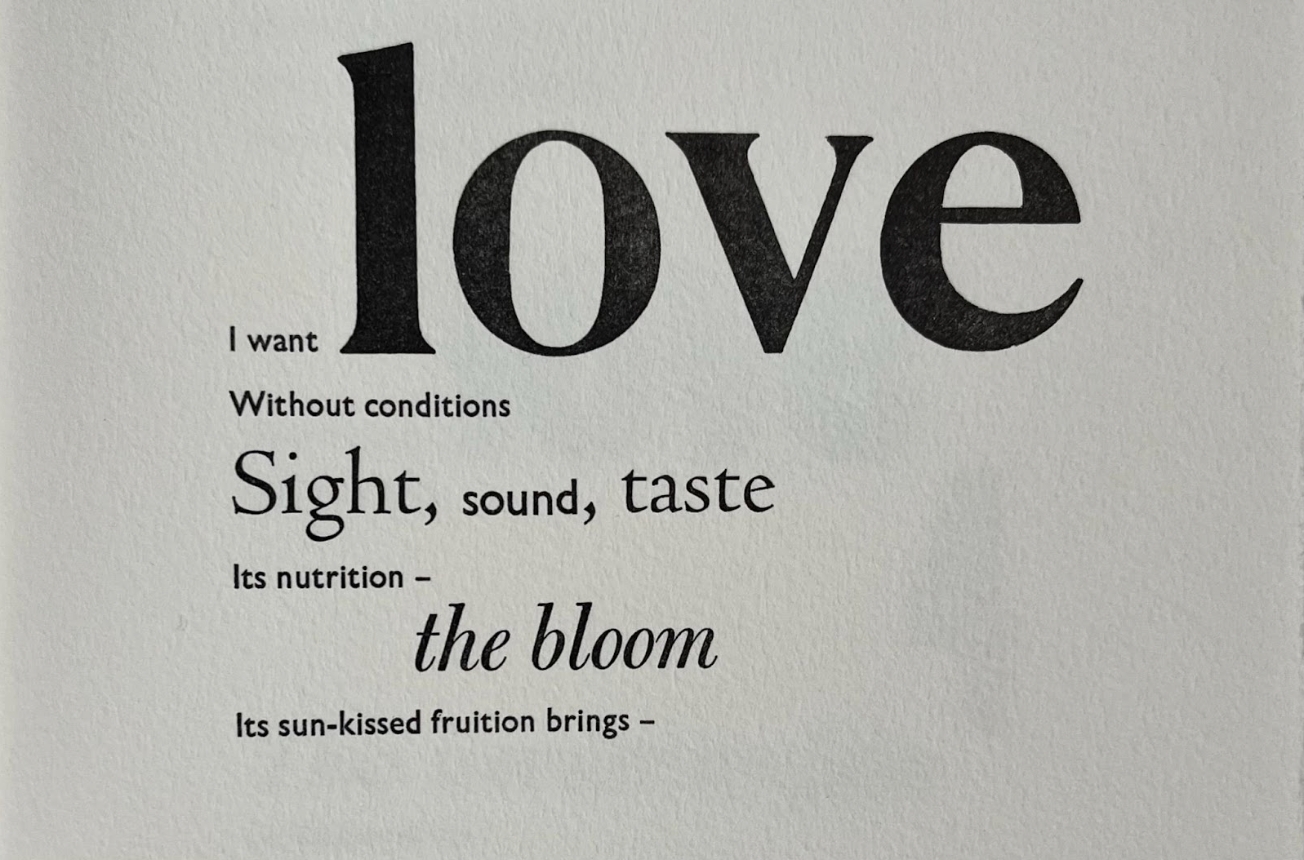 I want love
Without conditions
Sight, sound, taste
Its nutrition –
the bloom
Its sun-kissed fruition brings –